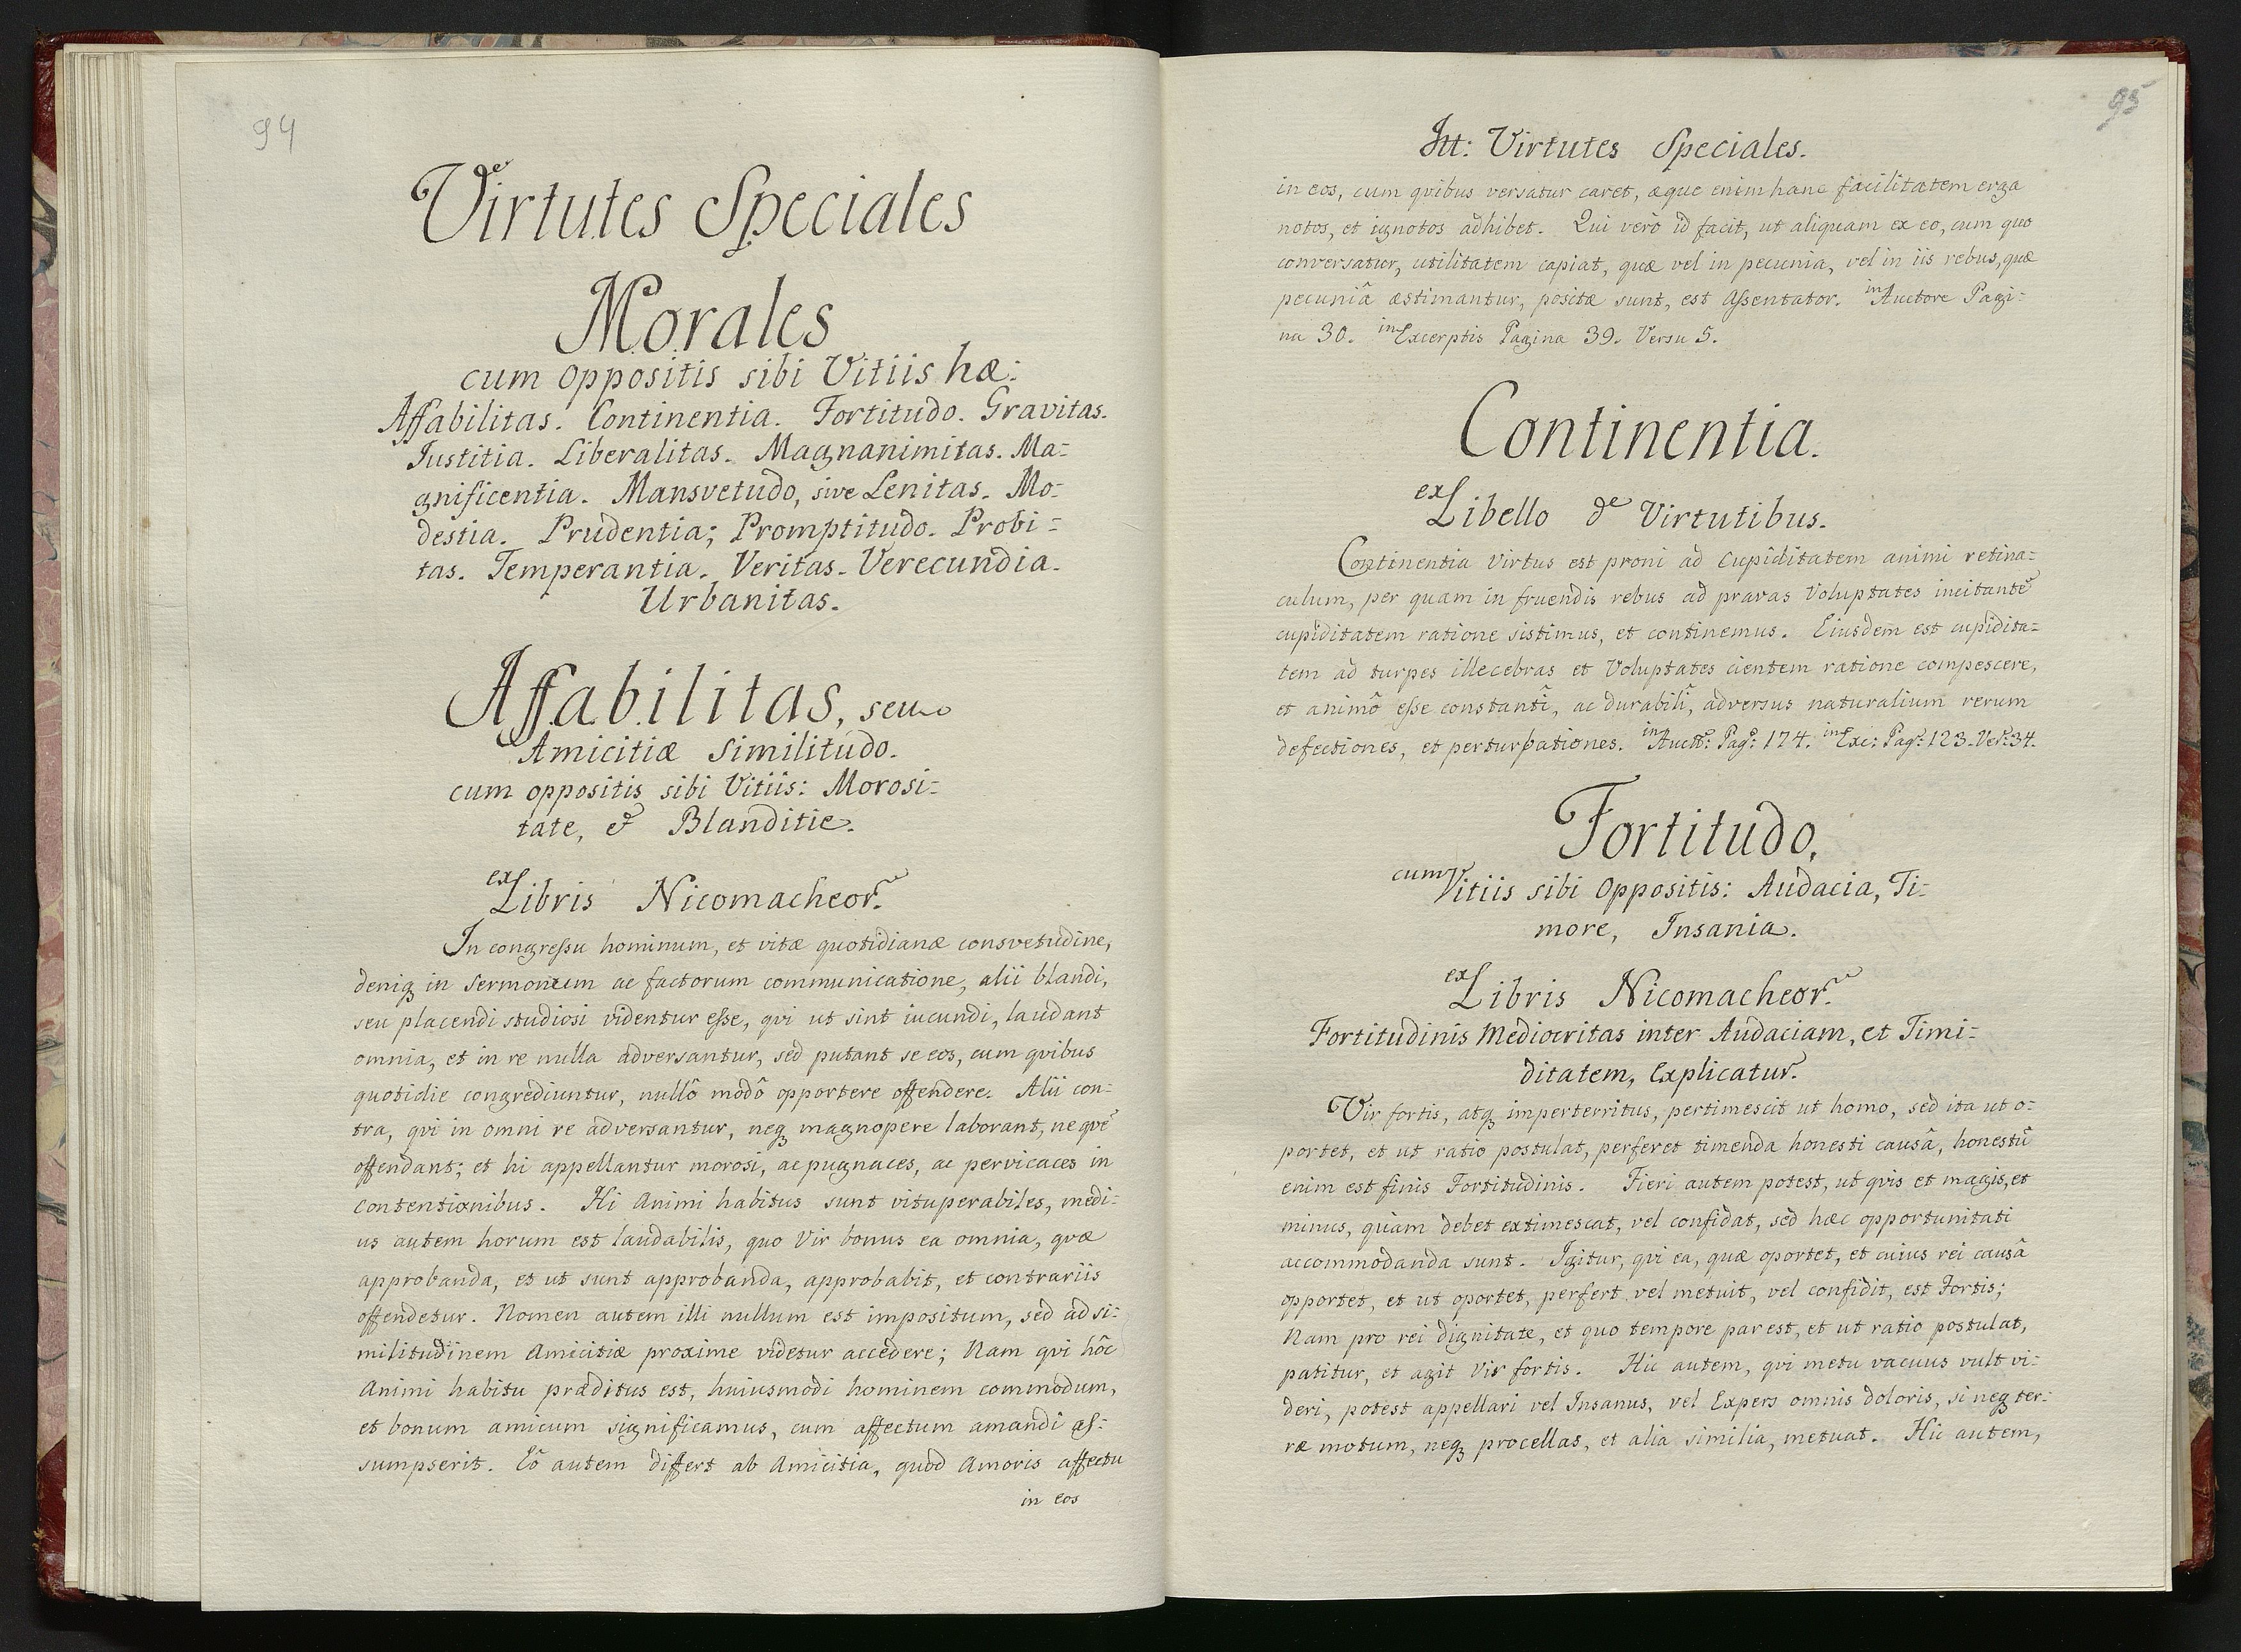 94
Virtutes Speciales
Morales
cum oppositis sibi Vitiis hæ:
Affabilitas. Continentia. Fortitudo. Gravitas.
Iustitia. Liberalitas. Magnanimitas. Ma=
gnificentia. Mansvetudo, sive Lenitas. Mo=
destia. Prudentia; Promptitudo. Probi=
tas. Temperantia. Veritas. Verecundia.
Urbanitas.
Affabilitas, seu
Amicitiæ Similitudo.
cum oppositis sibi Vitiis: Morosi=
tate, et Blanditie.
ex Libris Nicomacheor.
In congressu hominum, et vitæ quotidianæ consvetudine,
deniq in sermonum ac factorum communicatione, alii blandi,
seu placendi studiosi videntur esse, qvi ut sint iucundi, laudant
omnia, et in re nulla adversantur, sed putant se eos, cum qvibus
quotidie congrediuntur, nullô modô opportere offendere. Alii con=
tra, qvi in omni re adversantur, neq magnopere laborant, ne qvē
offendant; et hi appellantur morosi, ac pugnaces, ac pervicaces in
contentionibus. Hi Animi habitus sunt vituperabiles, medi=
us autem horum est laudabilis, quo Vir bonus ea omnia, qvæ
approbanda, et ut sunt approbanda, approbabit, et contrariis
offendetur. Nomen autem illi nullum est impositum, sed ad si=
militudinem Amicitiæ proxime videtur accedere; Nam qvi hôc
Animi habitu præditus est, huiusmodi hominem commodum,
et bonum amicum significamus, cum affectum amandi as=
sumpserit. Eô autem differt ab Amicitia, quod Amoris affectu
in eos
95
Itt: Virtutes Speciales.
in eos, cum qvibus versatur caret, æque enim hanc facilitatem erga
notos, et ignotos adhibet. Qui verò id facit, ut aliquam ex eo, cum quo
conversatur, utilitatem capiat, quæ vel in pecunia, vel in iis rebus, quæ
pecuniâ æstimantur, positæ sunt, est Assentator. in Auctore Pagi=
na 30. in Excerptis Pagina 39. Versu 5.
Continentia.
ex Libello de Virtutibus.
Continentia Virtus est proni ad Cupiditatem animi retina=
culum, per quam in fruendis rebus ad pravas Voluptates incitantē
cupiditatem ratione sistimus, et continemus. Eiusdem est cupidita=
tem ad turpes illecebras et Voluptates cientem ratione compescere,
et animô esse constantî, ac durabilî, adversus naturalium rerum
defectiones, et perturbationes. in Auctt: Pag: 174. in Exc: Pag: 123. Ver: 34.
Fortitudo,
cum Vitiis sibi Oppositis: Audacia, Ti=
more, Insania.
ex Libris Nicomacheor.
Fortitudinis Mediocritas inter Audaciam, et Timi=
ditatem, Explicatur.
Vir fortis, atq imperterritus, pertimescit ut homo, sed ita ut o=
portet, et ut ratio postulat, perferet timenda honesti causâ, honestū
enim est finis Fortitudinis. Fieri autem potest, ut qvis et magis, et
minus, quàm debet extimescat, vel confidat, sed hæc opportunitati
accommodanda sunt. Igitur, qvi ea, quæ oportet, et cuius rei causâ
opportet, et ut oportet, perfert vel metuit, vel confidit, est Fortis;
Nam pro rei dignitate, et quo tempore par est, et ut ratio postulat,
patitur, et agit Vir fortis. Hic autem, qvi metu vacuus vult vi=
deri, potest appellari vel Insanus, vel Expers omnis doloris, si neq ter=
ræ motum, neq procellas, et alia similia, metuat. Hic autem,